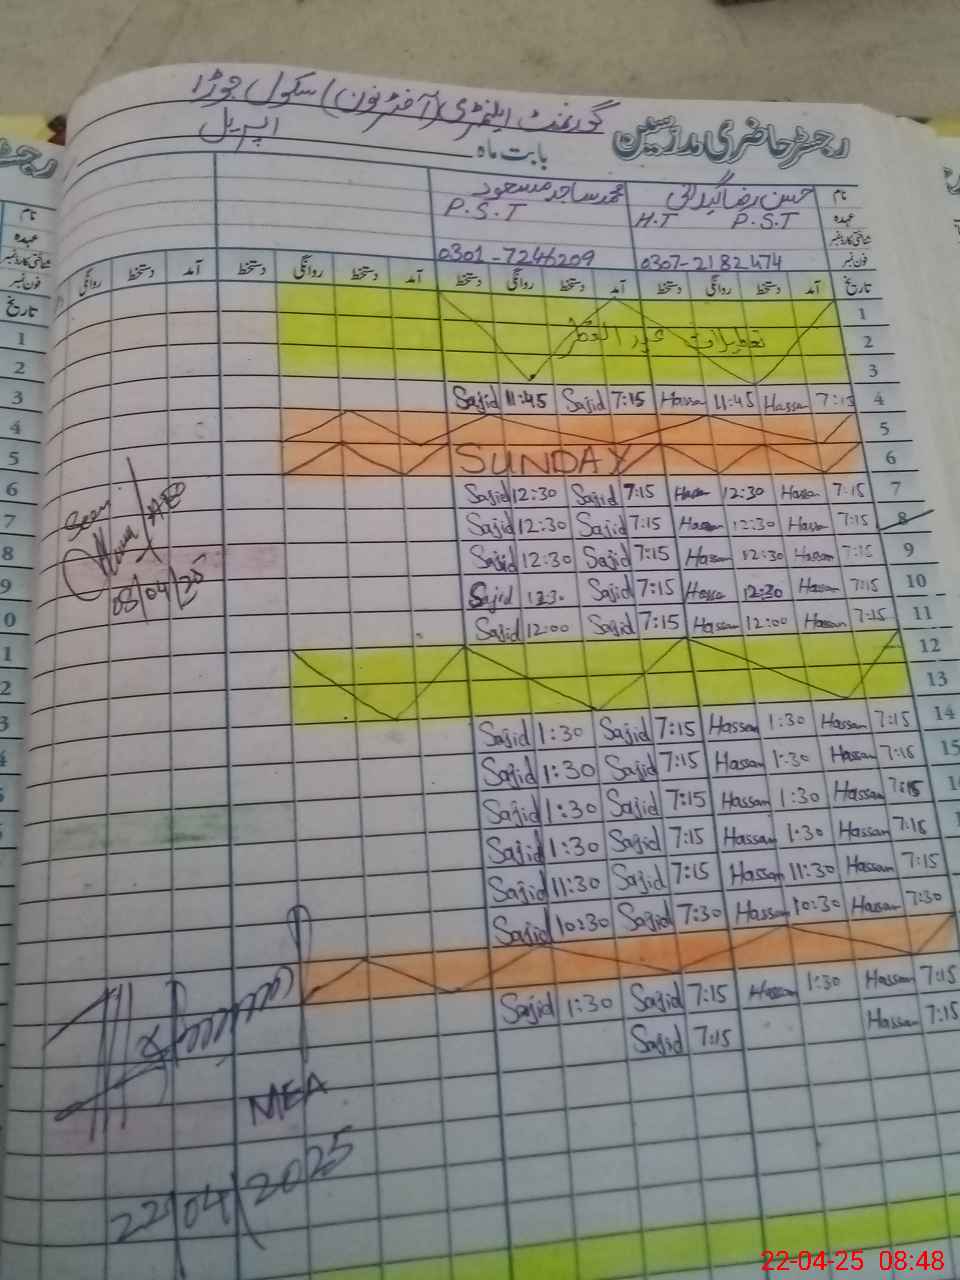 گورنمنٹ ایلیمنٹری (آفٹر نون) سکول جوڑا
رجسٹر حاضری مدرسین
بابت ماہ اپریل
نام حسن رضا گیلانی محمد ساجد مسعود
عہدہ H.T P.S.T P.S.T
شناختی کارڈ نمبر
فون نمبر 0307-2182474 0301-7246209
تاریخ آمد دستخط روانگی دستخط آمد دستخط روانگی دستخط آمد دستخط روانگی دستخط آمد دستخط روانگی
1
2 تعطیلات عید الفطر
3
Sajid 11:45 Sajid 7:15 Hassan 11:45 Hassan 7:15 4
5
SUNDAY 6
Sajid 12:30 Sajid 7:15 Hassan 12:30 Hassan 7:15 7
Sajid 12:30 Sajid 7:15 Hassan 12:30 Hassan 7:15 8
Sajid 12:30 Sajid 7:15 Hassan 12:30 Hassan 7:15 9
Sajid 12:30 Sajid 7:15 Hassan 12:30 Hassan 7:15 10
Sajid 12:00 Sajid 7:15 Hassan 12:00 Hassan 7:15 11
12
13
Sajid 1:30 Sajid 7:15 Hassan 1:30 Hassan 7:15 14
Sajid 1:30 Sajid 7:15 Hassan 1:30 Hassan 7:15 15
Sajid 1:30 Sajid 7:15 Hassan 1:30 Hassan 7:15
Sajid 1:30 Sajid 7:15 Hassan 1:30 Hassan 7:15
Sajid 11:30 Sajid 7:15 Hassan 11:30 Hassan 7:15
Sajid 10:30 Sajid 7:30 Hassan 10:30 Hassan 7:30
Sajid 1:30 Sajid 7:15 Hassan 1:30 Hassan 7:15
Sajid 7:15 Hassan 7:15
Seen
08/04/25
MEA
22/04/2025
22-04-25 08:48